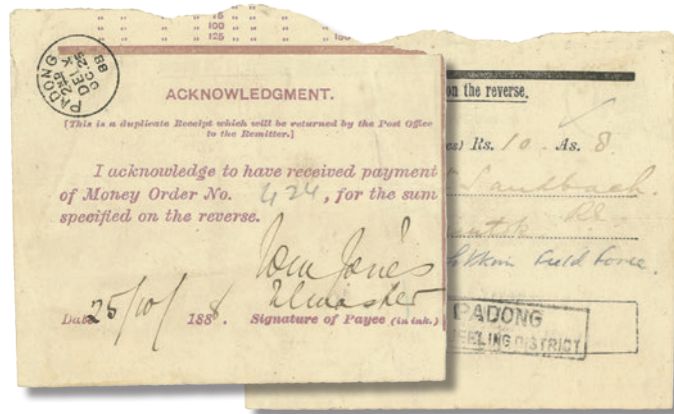 " 75 " " " "
" 100 " " " "
" 125 " " " " 150
PADONG
2ND
DEL
OC.25
88
ACKNOWLEDGMENT.
[This is a duplicate Receipt which will be returned by the Post Office
to the Remitter.]
I acknowledge to have received payment
of Money Order No. 424, for the sum
specified on the reverse.
Tom Jones
Date 25/10/ 1888. Signature of Payee (in ink.)
on the reverse.
Rs. 10 . As. 8
Sandbach.
RE
Sikkim Field Force.
PADONG
JEELING DISTRICT